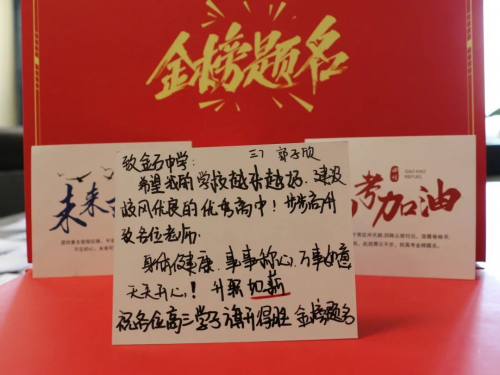 金榜题名
致金石中学:
三7 郭子欣
希望我的学校越来越好,建设
校风优良的优秀高中!步步高升
致各位老师:
身体健康,事事称心,万事如意
天天开心!升职加薪
祝各位高三学子旗开得胜 金榜题名
未来
考加油
GAO KAO
REFUEL